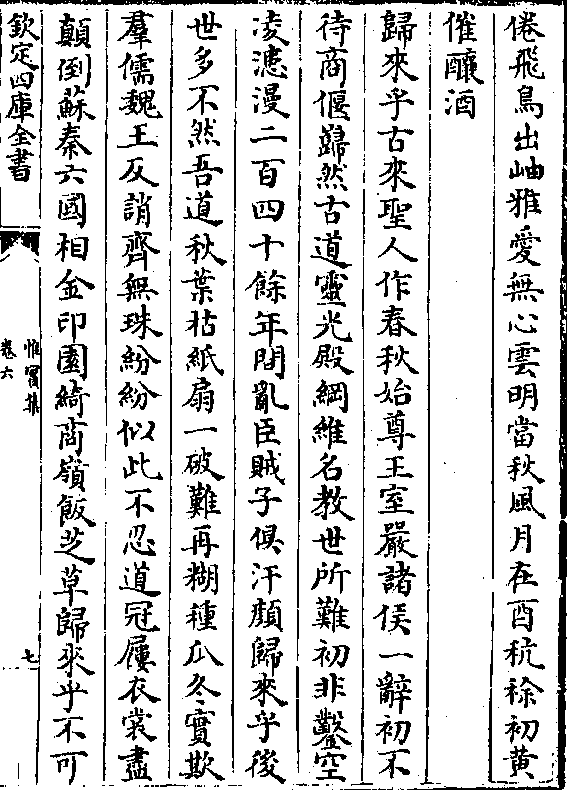 倦飛鳥出岫雅愛無心雲明當秋風月在酉秔稌初黄
催釀酒
歸來乎古來聖人作春秋始尊王室嚴諸侯一辭初不
待商偃巋然古道靈光殿綱維名教世所難初非鑿空
凌漶漫二百四十餘年間亂臣賊子俱汗顔歸來乎後
世多不然吾道秋葉枯紙扇一破難再糊種瓜冬實欺
羣儒魏王反誚齊無珠紛紛似此不忍道冠屨衣裳盡
顛倒蘇秦六國相金印園綺商嶺飯芝草歸來乎不可
欽定四庫全書
惟實集
卷六
七